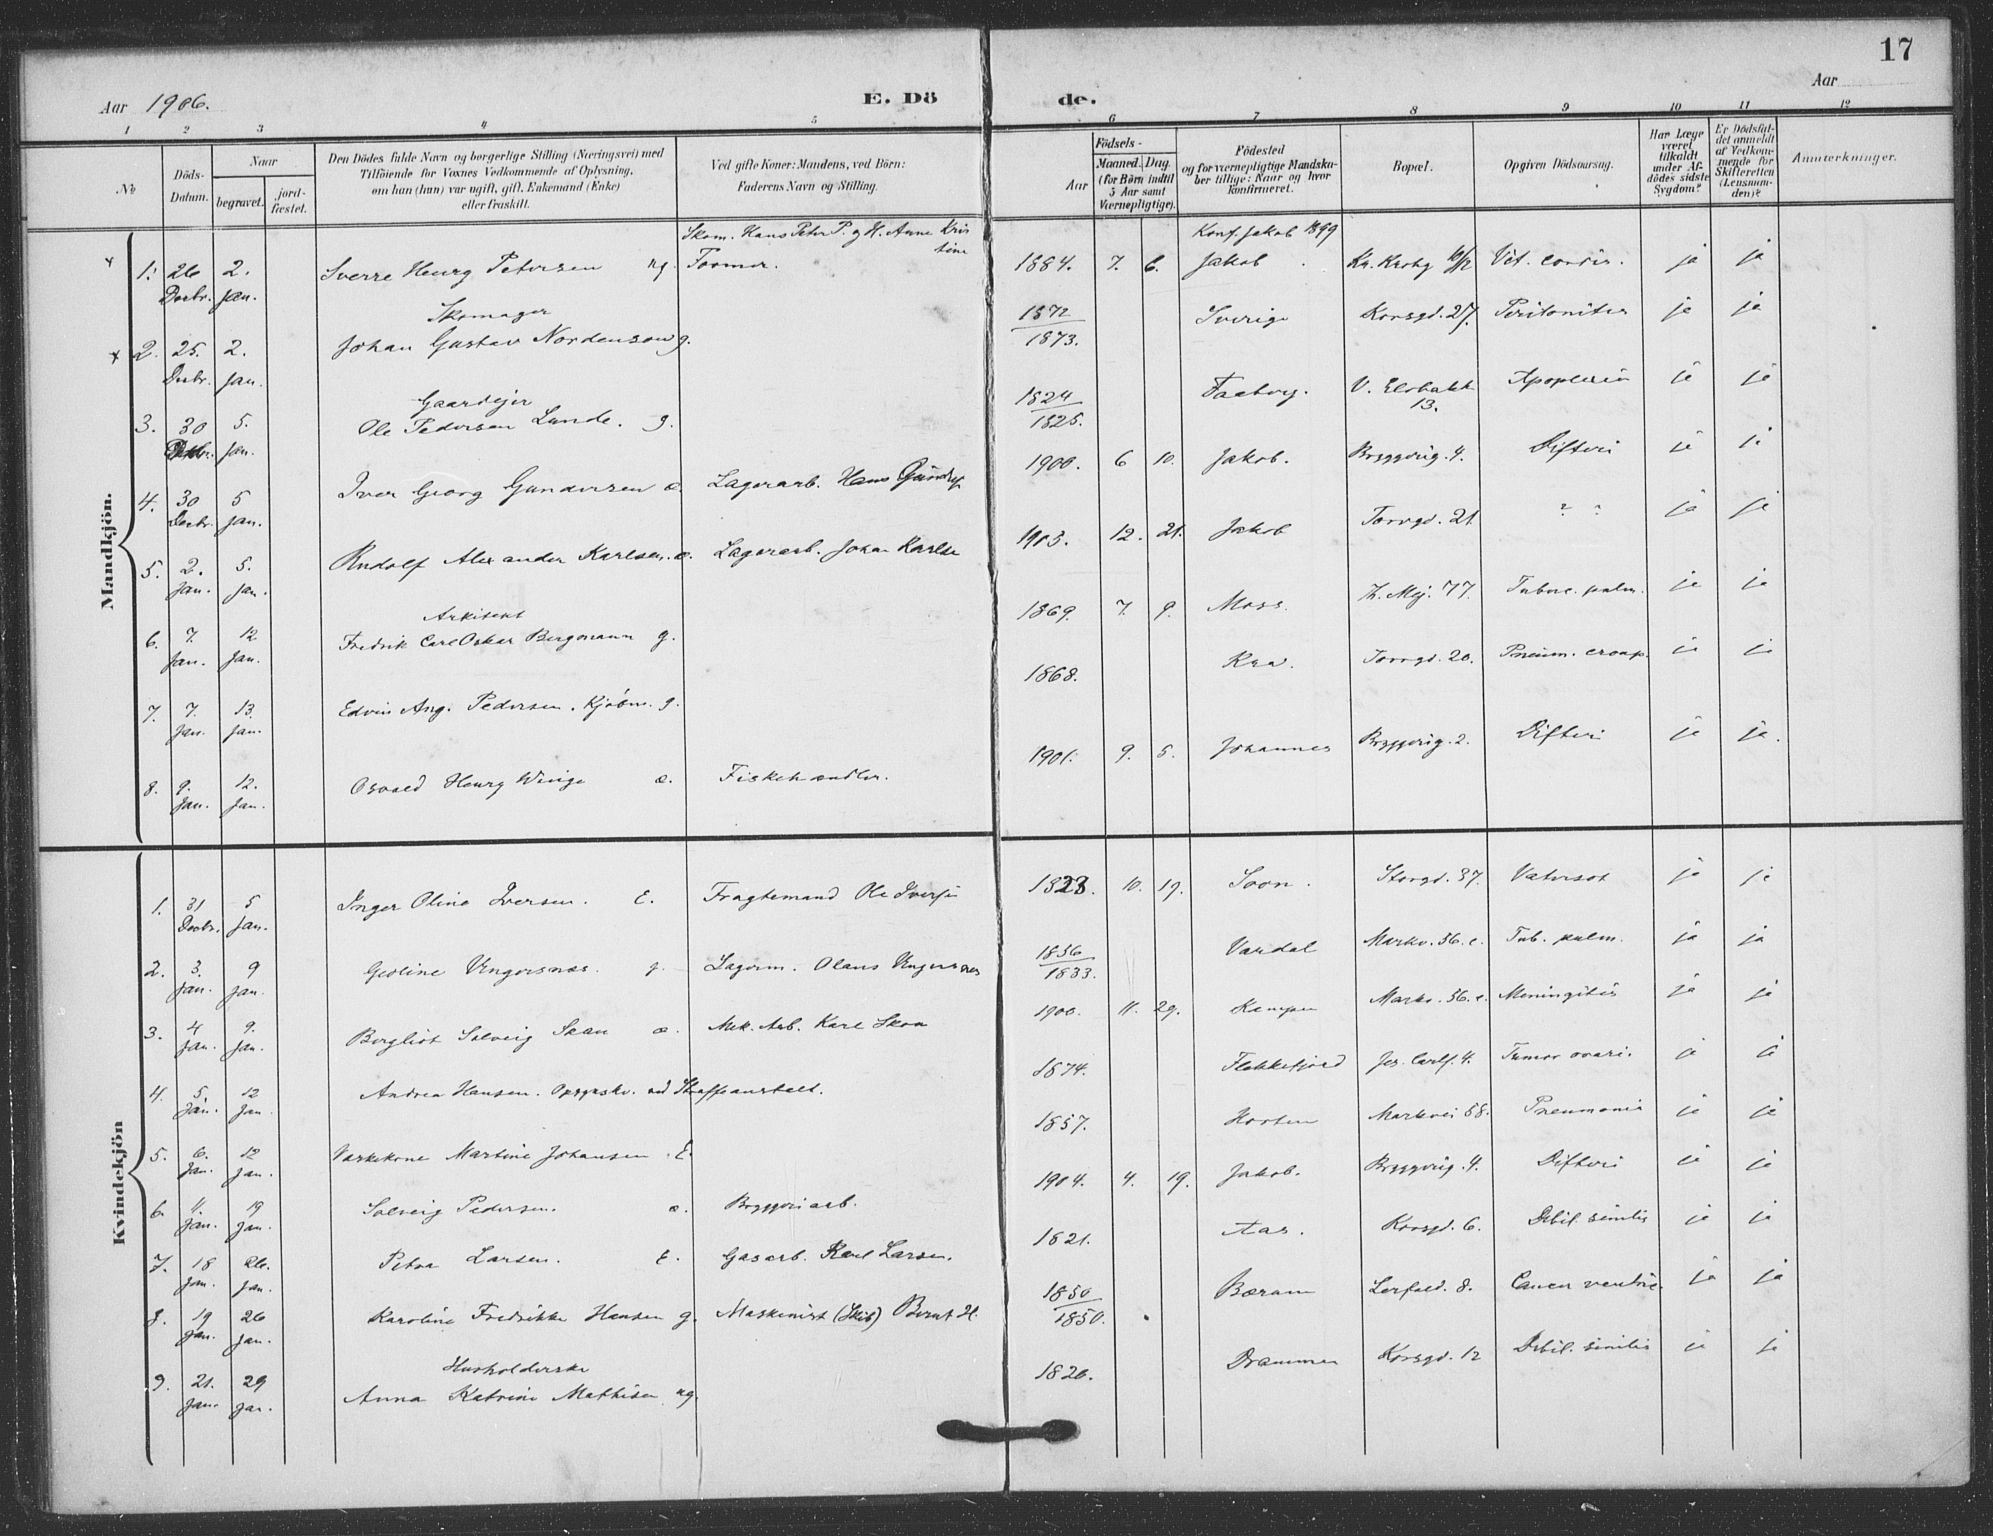 17
Aar 1906.
E. Dö de.
Aar
1 2 3 4 5 6 7 8 9 10 11 12
No
Döds-Datum.
Naar
begravet.
jord-fæstet.
Den Dödes fulde Navn og borgerlige Stilling (Næringsvei) med
Tilföiende for Voxnes Vedkommende af Oplysning,
om han (hun) var ugift, gift, Enkemand (Enke)
eller fraskilt.
Ved gifte Koner: Mandens, ved Börn:
Faderens Navn og Stilling.
Födsels-
Aar
Maaned. Dag.
(for Börn indtil
5 Aar samt
Værnepligtige).
Födested
og for værnepligtige Mandska-
ber tillige: Naar og hvor
konfirmeret.
Bopæl.
Opgiven Dödsaarsag.
Har Læge
været
tilkaldt
under Af-
dödes sidste
Sygdom?
Er Dödsfal-
det anmeldt
af Vedkom-
mende for
Skifteretten
(Lensman-
den)?
Anmærkninger.
Mandkjön.
Skom. Hans Peter P. og H. Anne Kris
tine Konf. Jakob 1899
1. 26 Decbr. 2. Jan. Sverre Henry Petersen ug. Tormer. 1884. 7. 6. Jakob Kr. Krohg 16/2 Vit. cordis. ja ja
Skomager
2. 25. Decbr. 2. Jan. Johan Gustav Nordenson g. 1872/1873. Sverige Korsgd. 27. Peritonitis ja ja
Gaardejer
3. 30 Decbr. 5. Jan. Ole Pedersen Lunde. g. 1824/1825. Faaberg. V. Elvebakk 13. Apoplexia ja ja
4. 30 Decbr. 5 Jan. Iver Georg Gundersen æ. Lagerarb. Hans Gunders 1900. 6 10. Jakob. Bryggerig. 4. Difteri ja ja
5. 2. Jan. 5. Jan. Rudolf Alexander Karlsen. æ. Lagerarb. Johan Karlse 1903. 12. 21. Jakob Torvgd. 21. " " ja ja
Arkitekt
6. 7. Jan. 12 Jan. Fredrik Carl Oskar Bergmann g. 1869. 7. 9. Moss. Th. Mej. 77. Tuberc. pulm. ja ja
7. 7. Jan. 13. Jan. Edvin Aug. Pedersen. Kjøbm. g. 1868. Kra. Torvgd. 20. Pneum. croup. ja ja
8. 9. Jan. 12. Jan. Osvald Henry Winge æ. Fiskehandler. 1901. 9. 5. Johannes Bryggerig. 2. Difteri ja ja.
Kvindekjön
1. 31 Decbr. 5 Jan. Inger Oline Iversen. E. Fragtemand Ole Iversen 1823. 10. 19. Soon. Storgd. 37. Vatersot ja ja
2. 3. Jan. 9 Jan. Gioline Ungersnæs. g. Lagerm. Olaus Ungersnæs 1836/1833. Vardal Markv. 56. c. Tub. pulm. ja ja
3. 4 Jan. 9. Jan. Bergliot Solveig Skau æ. Mek. Arb. Karl Skau 1900. 11. 29. Kampen Markv. 56. c. Meningitis ja ja
4. 5. Jan. 12 Jan. Andrea Hansen. Opsynskv. ved Straffeanstalt. 1874. Flekkefjord Jes. Carls. 4. Tumor ovari. ja ja
5. 6. Jan. 12 Jan. Vaskekone Martine Johansen. E. 1857. Horten Markvei 58. Pneumonie ja ja
6. 11. Jan. 19 Jan. Solveig Pedersen. æ. Bryggeriarb. 1904. 4. 19. Jakob. Bryggerig. 4. Difteri ja ja
7. 18 Jan. 26. Jan. Petra Larsen. E. Gasarb. Karl Larsen. 1821. Aas. Korsgd. 6. Debil. senilis ja ja
8. 19 Jan. 26 Jan. Karoline Fredrikke Hansen g. Maskinist (Skib) Bernt H. 1850/1850. Bærum Lerfald. 8. Cancer ventric. ja ja
Husholderske
9. 21. Jan. 29 Jan. Anna Katrine Mathisen ug. 1820. Drammen Korsgd. 12 Debil. senilis ja ja